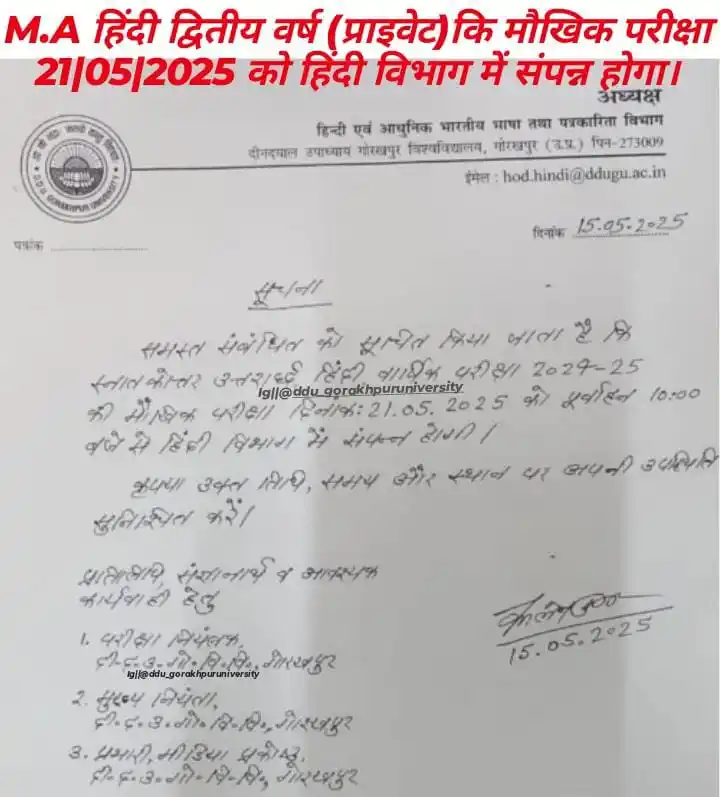 M.A हिंदी द्वितीय वर्ष (प्राइवेट)कि मौखिक परीक्षा
21|05|2025 को हिंदी विभाग में संपन्न होगा।
अध्यक्ष
हिन्दी एवं आधुनिक भारतीय भाषा तथा पत्रकारिता विभाग
दीनदयाल उपाध्याय गोरखपुर विश्वविद्यालय, गोरखपुर (उ.प्र.) पिन-273009
ईमेल : hod.hindi@ddugu.ac.in
D.D.U. GORAKHPUR UNIVERSITY
दिनांक 15.05.2025
पत्रांक
सूचना
समस्त संबंधित को सूचित किया जाता है कि
स्नातकोत्तर उत्तरार्द्ध हिंदी वार्षिक परीक्षा 2024-25
Ig||@ddu_gorakhpuruniversity
की मौखिक परीक्षा दिनांक: 21.05.2025 को पूर्वाहन 10:00
बजे से हिंदी विभाग में संपन्न होगी।
कृपया उक्त तिथि, समय और स्थान पर अपनी उपस्थिति
सुनिश्चित करें।
प्रतिलिपि, संज्ञानार्थ व आवश्यक
कार्यवाही हेतु
15.05.2025
1. परीक्षा नियंत्रक,
दी.द.उ.गो.वि.वि., गोरखपुर
Ig||@ddu_gorakhpuruniversity
2. मुख्य नियंता,
दी.द.उ.गो.वि.वि., गोरखपुर
3. प्रभारी, मीडिया प्रकोष्ठ,
दी.द.उ.गो.वि.वि., गोरखपुर